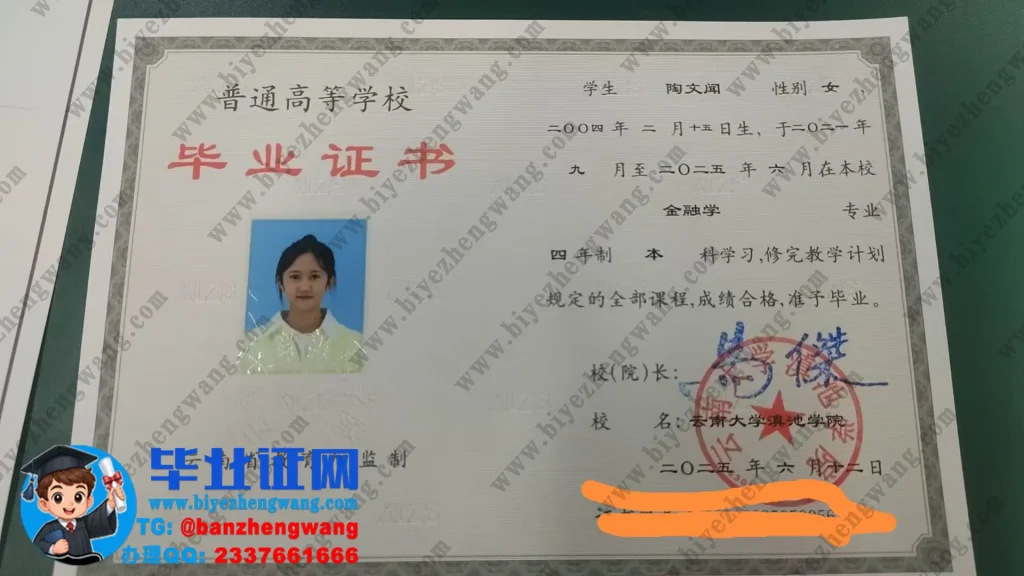 普通高等学校
毕业证书
学生 陶文闻 性别 女，
二〇〇四年 二 月十五日生，于二〇二一年
九 月至二〇二五 年 六 月在本校
金融学 专业
四 年制 本 科学习，修完教学计划
规定的全部课程，成绩合格，准予毕业。
校（院）长：
校 名：云南大学滇池学院
二〇二五 年 六 月十二日
监制
毕业证网
www.biyezhengwang.com
TG: @banzhengwang
办理QQ: 2337661666
www.biyezhengwang.com